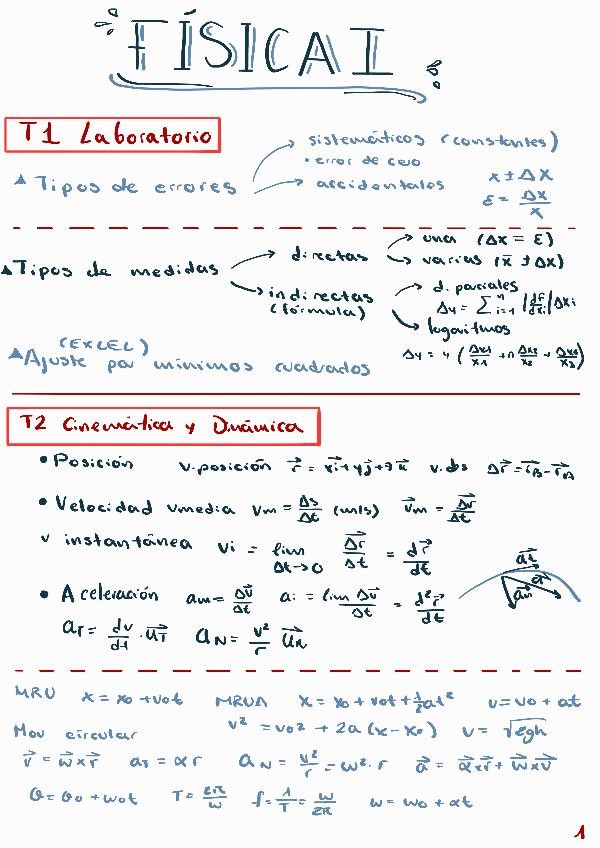 FÍSICA I
T1 Laboratorio
▲ Tipos de errores → sistemáticos (constantes)
• error de cero
→ accidentales x ± Δx
ε = Δx/x
▲ Tipos de medidas → directas → una (Δx = ε)
→ varias (x̄ ± Δx)
→ indirectas (fórmula) → d. parciales
Δy = Σⁿᵢ₌₁ |df/dxi| Δxi
→ logaritmos
(EXCEL)
▲ Ajuste por mínimos cuadrados Δy = y (Δx1/x1 + n Δx2/x2 + Δx3/x3)
T2 Cinemática y Dinámica
• Posición v.posición r⃗ = xi⃗+yj⃗+zk⃗ v.des Δr⃗ = r⃗B - r⃗A
• Velocidad vmedia vm = Δs/Δt (m/s) v⃗m = Δr⃗/Δt
v instantánea vi = lim Δt→0 Δr⃗/Δt = dr⃗/dt
• Aceleración am = Δv⃗/Δt ai = lim Δv⃗/Δt = d²r⃗/dt
at⃗
a⃗
an⃗
aT = dv/dt · uT⃗ aN = v²/r uN⃗
MRU x = x0 + v0t MRUA x = x0 + v0t + ½at² v = v0 + at
v² = v0² + 2a (x - x0) v = √2gh
Mov circular
v⃗ = w⃗ x r⃗ aT = αr aN = v²/r = w² · r a⃗ = α⃗xr⃗ + w⃗xv⃗
θ = θ0 + w0t T = 2π/w f = 1/T = w/2π w = w0 + αt
1